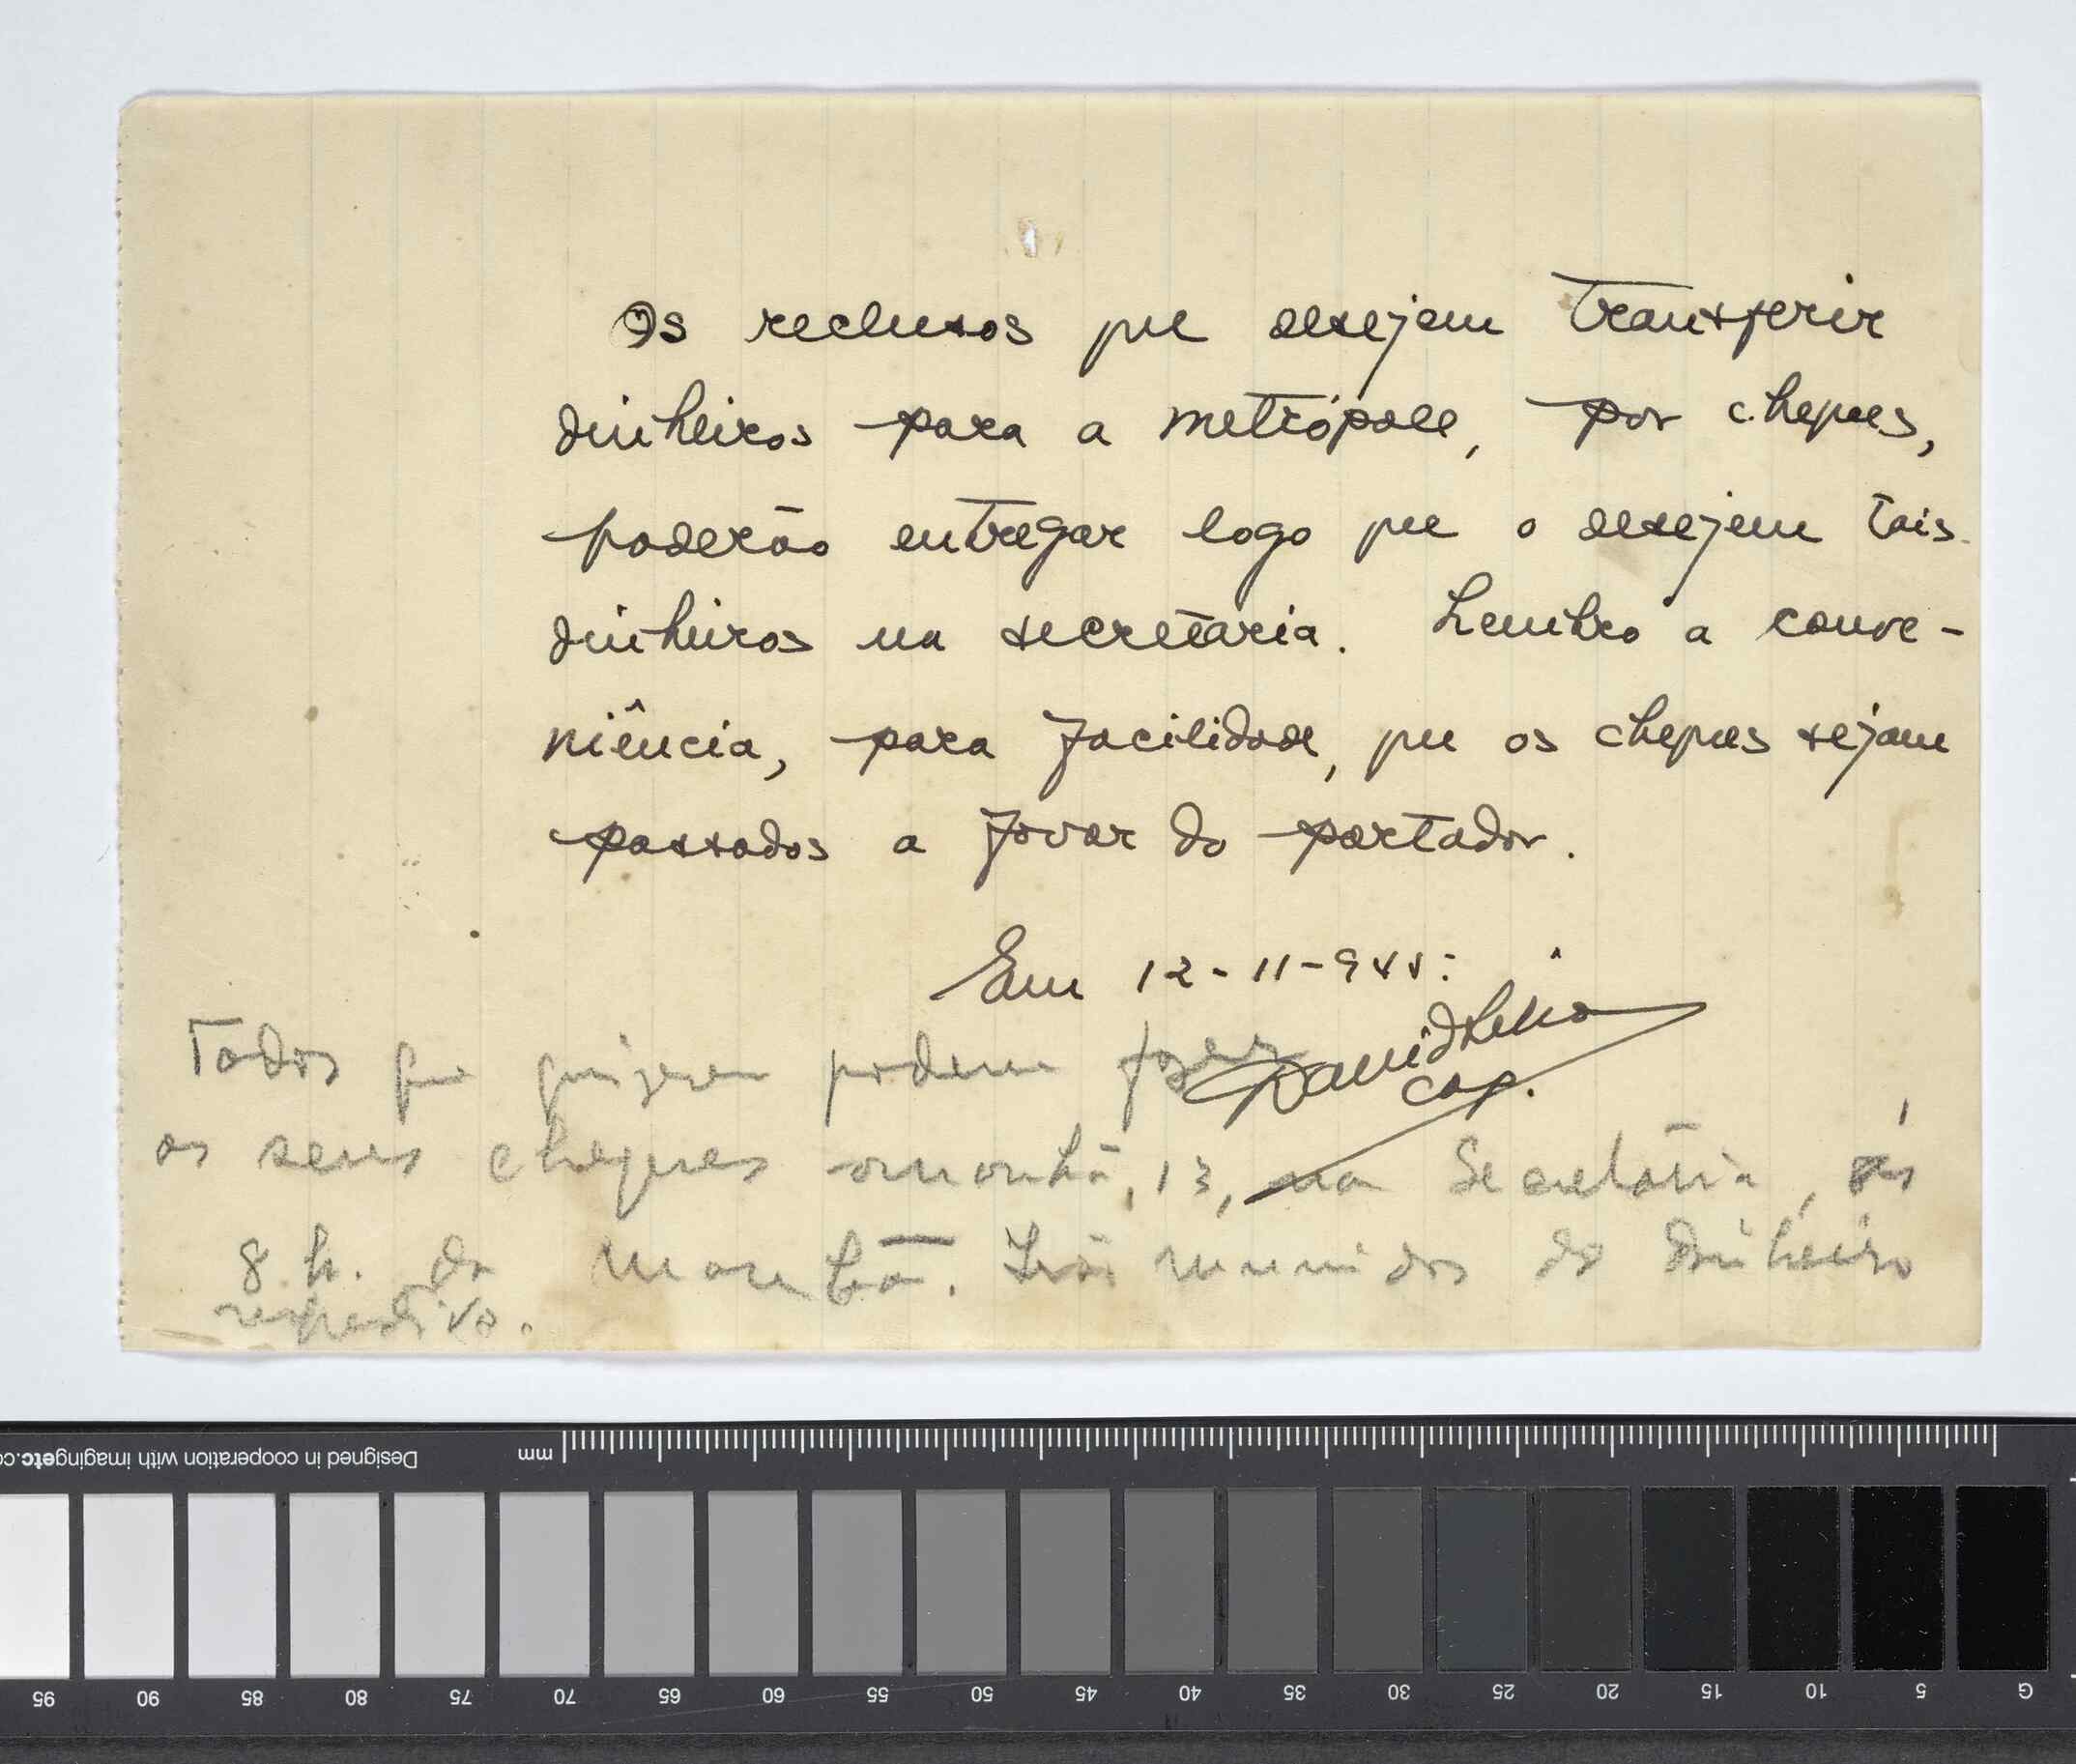 Os reclusos que desejem transferir
dinheiros para a metrópole, por cheques,
poderão entregar logo que o desejem tais
dinheiros na secretaria. Lembro a conve-
niência, para facilidade, que os cheques sejam
passados a favor do portador.
Em 12-11-944:
cap.
Todos que quizerem podem fazer
os seus cheques amanhã, 13, na Secretária, ás
8 h. da manhã. munidos do dinheiro
respectivo.
Designed in cooperation with imagingetc.co
mm
95 90 85 80 75 70 65 60 55 50 45 40 35 30 25 20 15 10 5 G